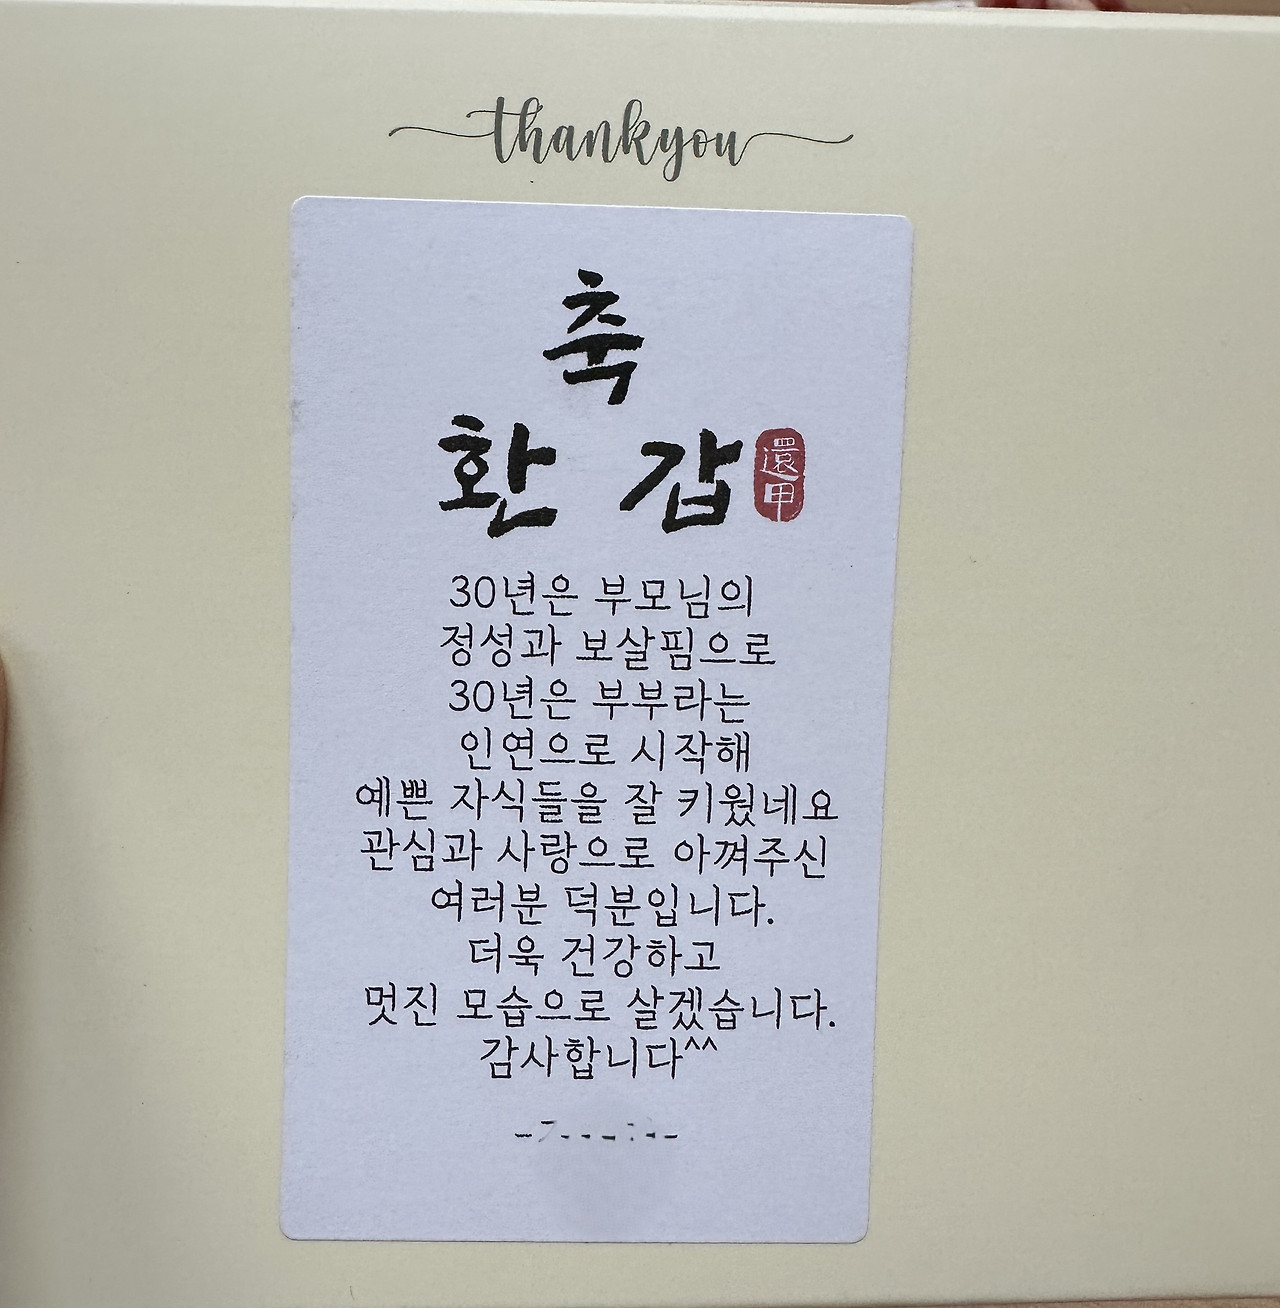 thankyou
축
환 갑
還甲
30년은 부모님의
정성과 보살핌으로
30년은 부부라는
인연으로 시작해
예쁜 자식들을 잘 키웠네요
관심과 사랑으로 아껴주신
여러분 덕분입니다.
더욱 건강하고
멋진 모습으로 살겠습니다.
감사합니다^^